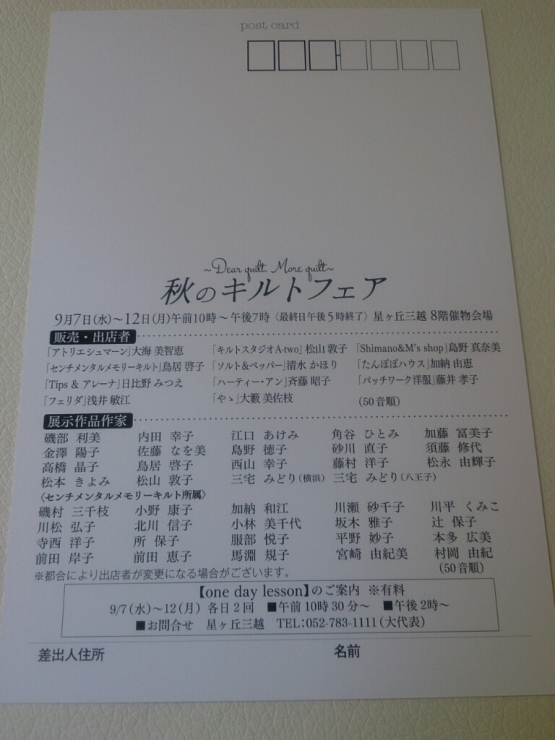 post card
~Dear quilt. More quilt~
秋のキルトフェア
9月7日(水)~12日(月)午前10時~午後7時〈最終日午後5時終了〉星ヶ丘三越 8階催物会場
販売・出店者
「アトリエシュマーン」大海 美智恵 「キルトスタジオA-two」松山 敦子 「Shimano&M's shop」島野 真奈美
「センチメンタルメモリーキルト」鳥居 啓子 「ソルト&ペッパー」清水 かほり 「たんぽぽハウス」加納 由恵
「Tips & アレーナ」日比野 みつえ 「ハーティー・アン」斉藤 昭子 「パッチワーク洋服」藤井 孝子
「フェリダ」浅井 敏江 「やゝ」大籔 美佐枝 (50音順)
展示作品作家
磯部 利美 内田 幸子 江口 あけみ 角谷 ひとみ 加藤 冨美子
金澤 陽子 佐藤 なを美 島野 徳子 砂川 直子 須藤 修代
高橋 晶子 鳥居 啓子 西山 幸子 藤村 洋子 松永 由輝子
松本 きよみ 松山 敦子 三宅 みどり(横浜) 三宅 みどり(八王子)
〈センチメンタルメモリーキルト所属〉
磯村 三千枝 小野 康子 加納 和江 川瀬 砂千子 川平 くみこ
川松 弘子 北川 信子 小林 美千代 坂木 雅子 辻 保子
寺西 洋子 所 保子 服部 悦子 平野 妙子 本多 広美
前田 岸子 前田 恵子 馬淵 規子 宮崎 由紀美 村岡 由紀
※都合により出店者が変更になる場合がございます。 (50音順)
【one day lesson】のご案内 ※有料
9/7(水)~12(月) 各日2回 ■午前10時30分~ ■午後2時~
■お問合せ 星ヶ丘三越 TEL:052-783-1111(大代表)
差出人住所 名前